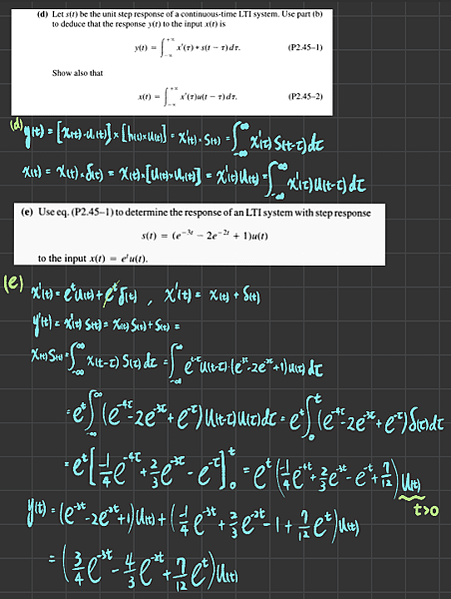 (d) Let s(t) be the unit step response of a continuous-time LTI system. Use part (b)
to deduce that the response y(t) to the input x(t) is
y(t) = ∫_{-∞}^{+∞} x'(τ) * s(t − τ)dτ. (P2.45–1)
Show also that
x(t) = ∫_{-∞}^{+∞} x'(τ)u(t − τ)dτ. (P2.45–2)
(d) y(t) = [x(t)*u_1(t)]*[h(t)*u(t)] = x'(t)*s(t) = ∫_{-∞}^{∞} x'(τ)s(t-τ)dτ
x(t) = x(t)*δ(t) = x(t)*[u(t)*u_1(t)] = x'(t)*u(t) = ∫_{-∞}^{∞} x'(τ)u(t-τ)dτ
(e) Use eq. (P2.45–1) to determine the response of an LTI system with step response
s(t) = (e^{−3t} − 2e^{−2t} + 1)u(t)
to the input x(t) = e^t u(t).
(e) x'(t) = e^t u(t) + e^t δ(t) , x'(t) = x(t) + δ(t)
y'(t) = x'(t) s(t) = x(t) s(t) + s(t) =
x(t) s(t) = ∫_{-∞}^{∞} x(t-τ) s(τ) dτ = ∫_{-∞}^{∞} e^{t-τ} u(t-τ) (e^{-3τ} - 2e^{-2τ} + 1) u(τ) dτ
= e^t ∫_{-∞}^{∞} (e^{-4τ} - 2e^{-3τ} + e^{-τ}) u(t-τ) u(τ) dτ = e^t ∫_0^t (e^{-4τ} - 2e^{-3τ} + e^{-τ}) δ(τ) dτ
= e^t [-1/4 e^{-4τ} + 2/3 e^{-3τ} - e^{-τ}]_0^t = e^t (-1/4 e^{-4t} + 2/3 e^{-3t} - e^{-t} + 7/12) u(t)
t>0
y(t) = (e^{-3t} - 2e^{-2t} + 1) u(t) + (-1/4 e^{-3t} + 2/3 e^{-2t} - 1 + 7/12 e^t) u(t)
= (3/4 e^{-3t} - 4/3 e^{-2t} + 7/12 e^t) u(t)